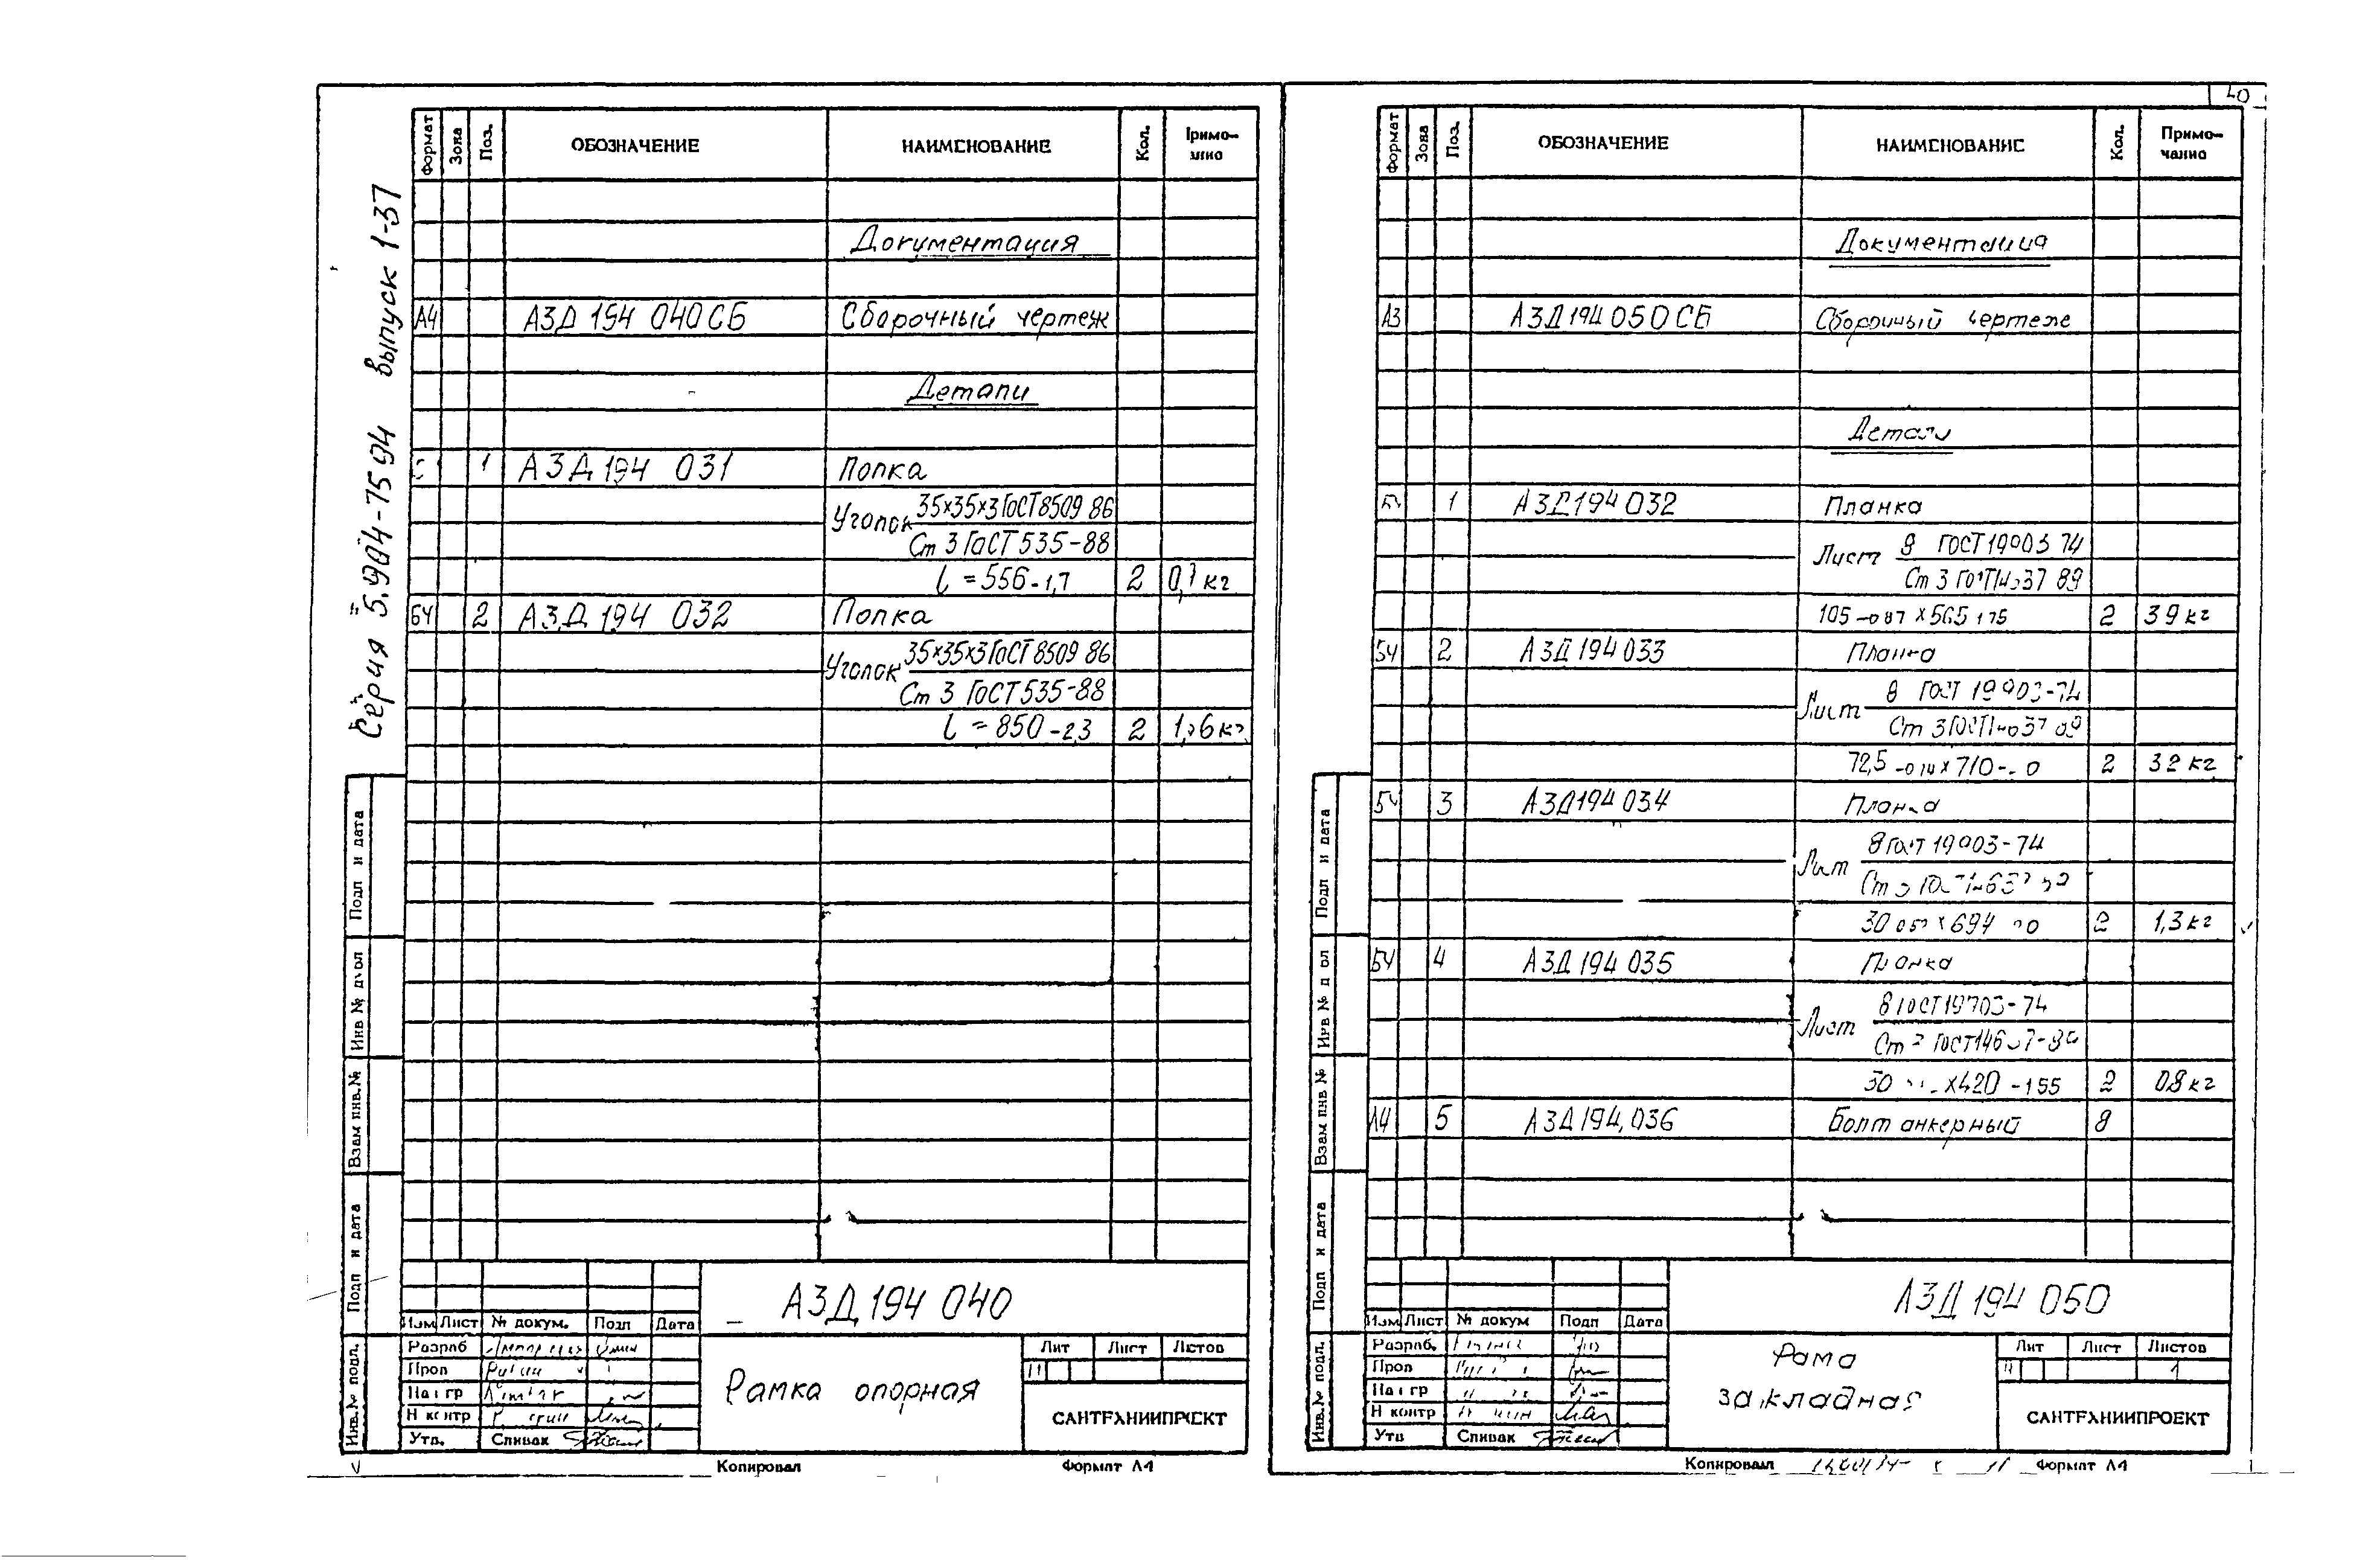 Серия 5.904-75 94 выпуск 1-37
Формат Зона Поз. ОБОЗНАЧЕНИЕ НАИМЕНОВАНИЕ Кол.
Документация
А4 А3Д 194 040 СБ Сборочный чертеж
Детали
1 А3Д 194 031 Полка
Уголок 35х35х3 ГОСТ 8509 86
Ст 3 ГОСТ 535-88
l = 556-1,7 2 кг
БЧ 2 А3Д 194 032 Полка
Уголок 35х35х3 ГОСТ 8509 86
Ст 3 ГОСТ 535-88
l = 850-2,3 2
Подп и дата
Инв №
Взам инв.№
Подп и дата
Инв.№ подл.
А3Д 194 040
Изм Лист № докум. Подп Дата
Разраб
Пров
Нач гр
Н контр
Утв. Спивак
Рамка опорная
Лит Лист Листов
САНТЕХНИИПРОЕКТ
Копировал Формат А4
Формат Зона Поз. ОБОЗНАЧЕНИЕ НАИМЕНОВАНИЕ Кол. Приме-
чание
Документация
А3 А3Д 194 050 СБ Сборочный чертеж
Детали
БЧ 1 А3Д 194 032 Планка
Лист 8 ГОСТ 19903 74
Ст 3
105-0 87 х 565 2 3 9 кг
БЧ 2 А3Д 194 033 Планка
Лист 8 ГОСТ 19903-74
Ст 3
72,5 х 710 2 3 2 кг
БЧ 3 А3Д 194 034 Планка
Лист 8 ГОСТ 19903-74
Ст
30 х 694 2 1,3 кг
БЧ 4 А3Д 194 035 Планка
Лист 8 ГОСТ 19903-74
Ст
30 х 420 -1 55 2 0 8 кг
А4 5 А3Д 194,036 Болт анкерный 8
Подп и дата
Взам инв №
Подп и дата
Инв.№ подл.
А3Д 194 050
Изм Лист № докум Подп Дата
Разраб.
Пров
Нач гр
Н контр
Утв Спивак
Рама
закладная
Лит Лист Листов
1
САНТЕХНИИПРОЕКТ
Копировал Формат А4